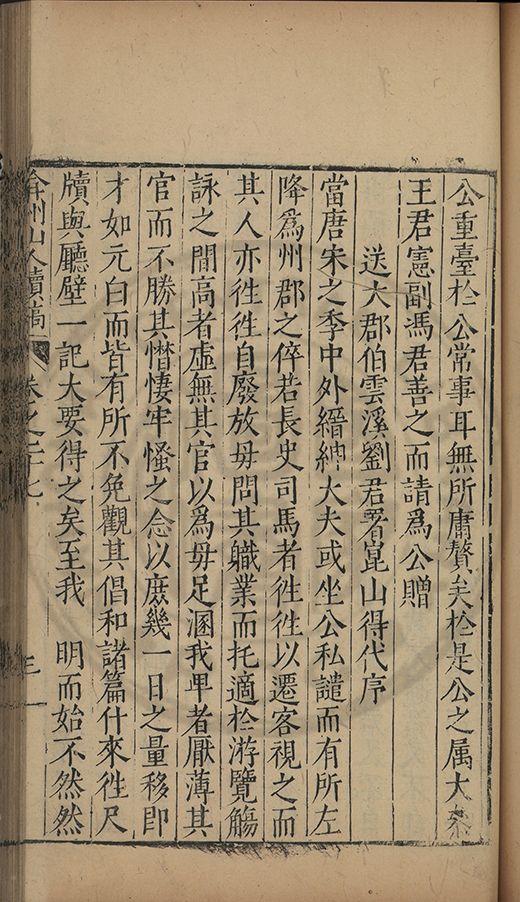 公重臺於公常事耳無所庸贅矣於是公之属大叅
王君憲副馮君善之而請爲公贈
送大郡伯雲溪劉君署崑山得代序
當唐宋之季中外縉紳大夫或坐公私譴而有所左
降爲州郡之倅若長史司馬者徃徃以遷客視之而
其人亦徃徃自廢放毋問其軄業而托適於游覽觴
詠之間高者虛無其官以爲毋足溷我卑者厭薄其
官而不勝其憯悽牢慅之念以庻幾一日之量移即
才如元白而皆有所不免觀其倡和諸篇什來徃尺
牘與廳壁一記大要得之矣至我　明而始不然然
弇州山人續稿　卷之二十七　三